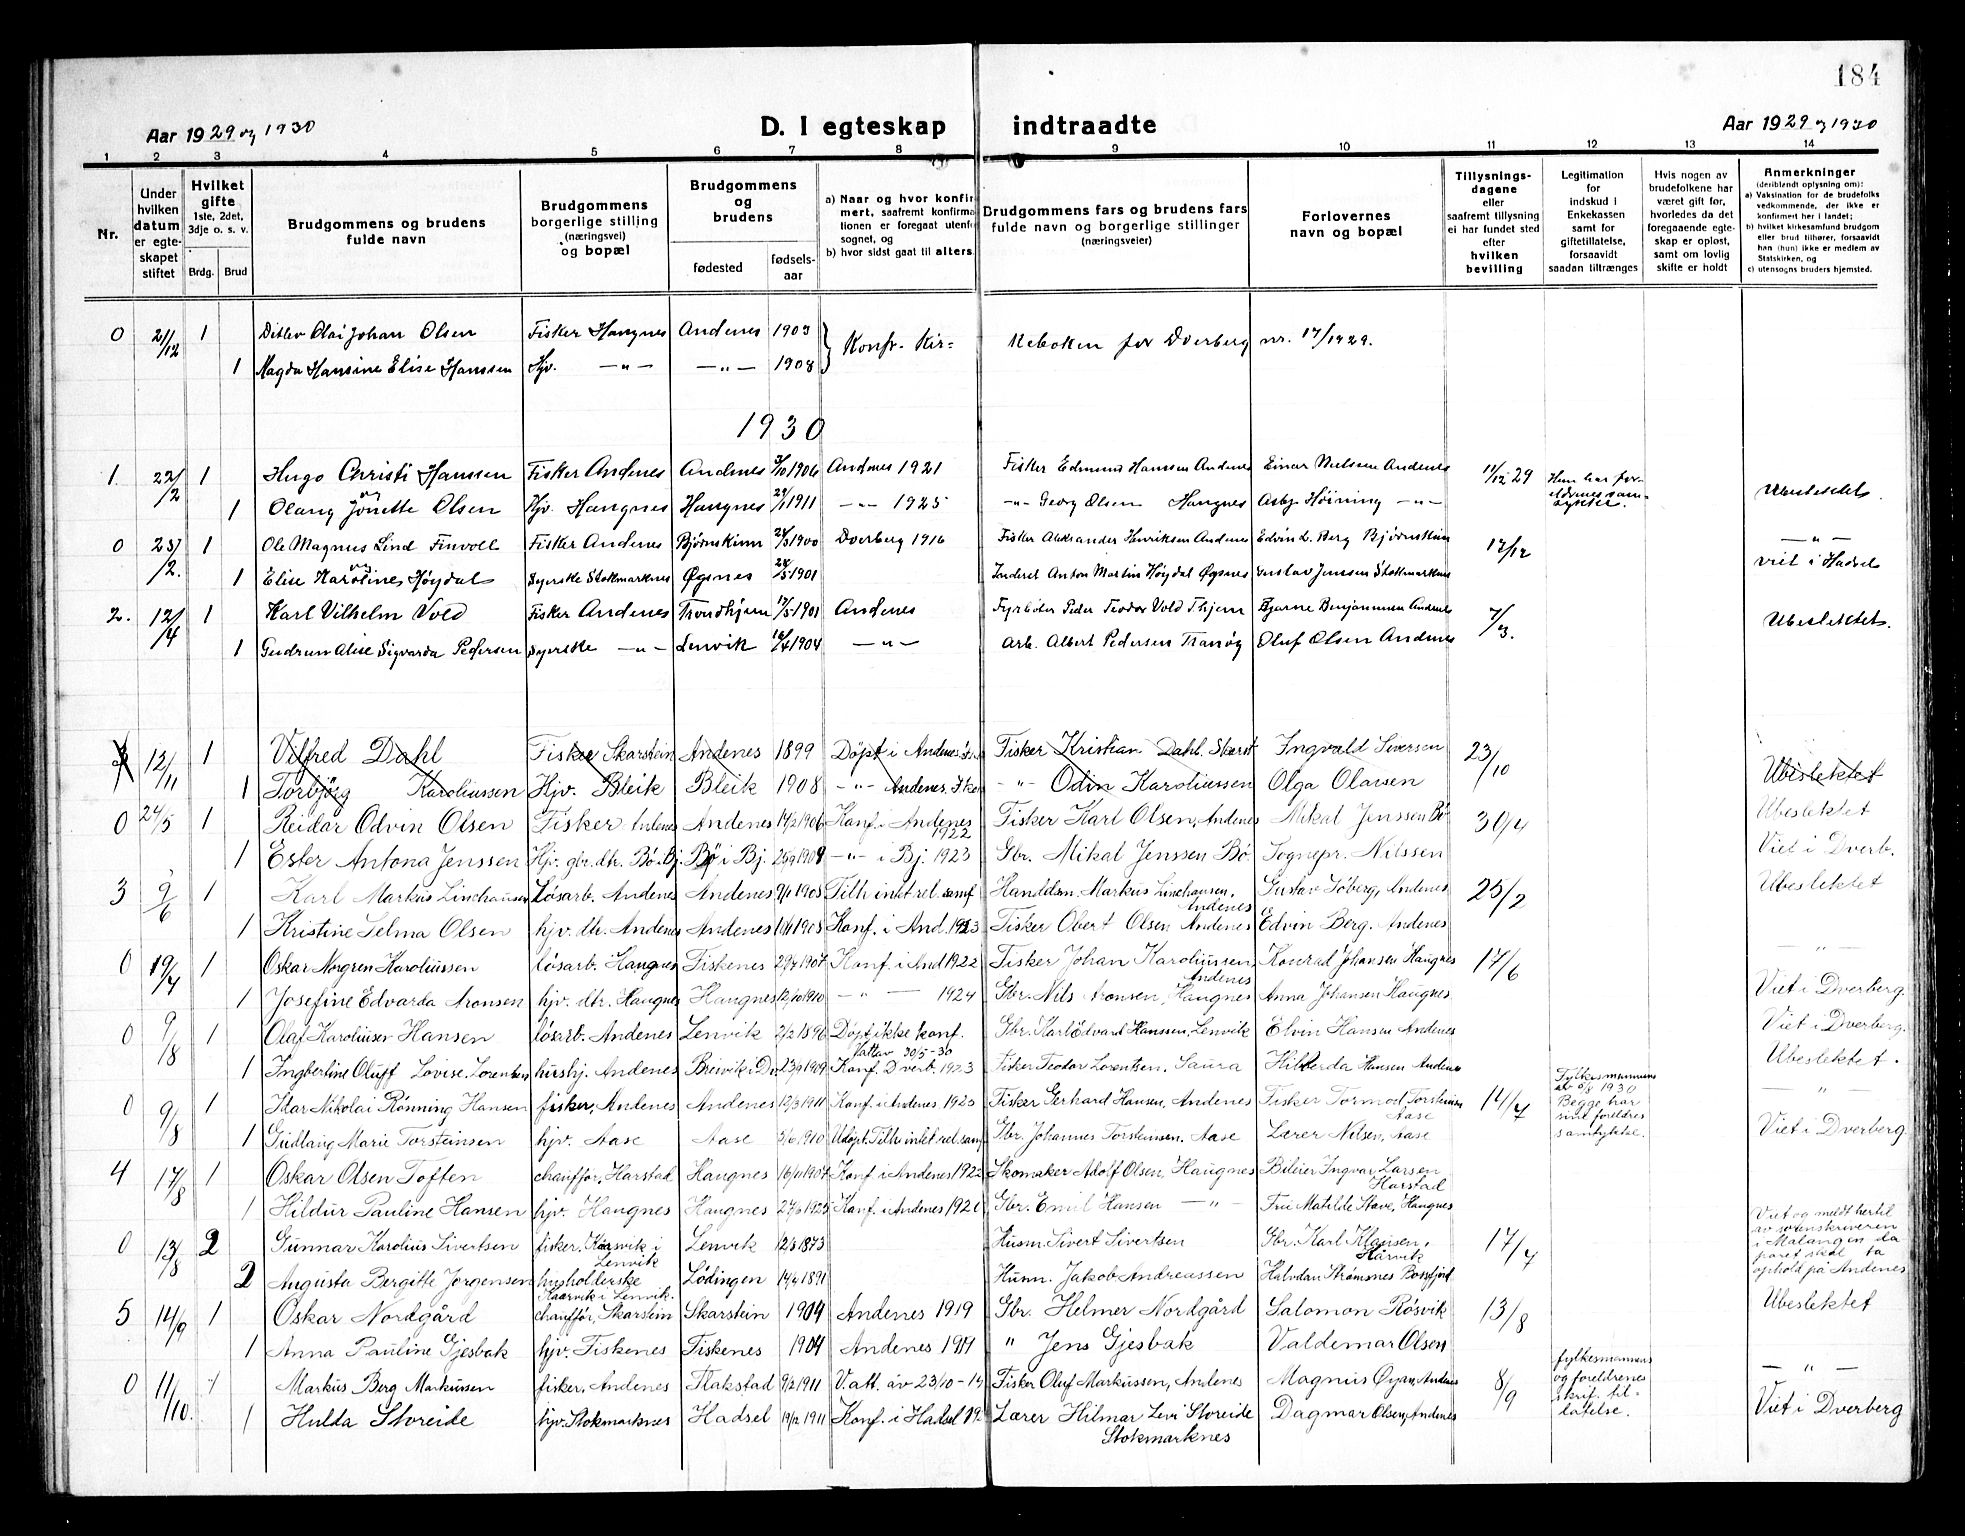 184
Aar 1929 og 1930
D. I egteskap indtraadte
Aar 1929 og 1930
1 2 3 4 5 6 7 8 9 10 11 12 13 14
Nr.
Under hvilken datum er egteskapet stiftet
Hvilket gifte
1ste, 2det, 3dje o. s. v.
Brdg. Brud
Brudgommens og brudens fulde navn
Brudgommens borgerlige stilling (næringsvei) og bopæl
Brudgommens og brudens
fødested
fødsels-aar
a) Naar og hvor konfirmert, saafremt konfirmationen er foregaat utenfor sognet, og
b) hvor sidst gaat til alters.
Brudgommens fars og brudens fars fulde navn og borgerlige stillinger (næringsveier)
Forlovernes navn og bopæl
Tillysnings-dagene eller saafremt tillysning ei har fundet sted efter hvilken bevilling
Legitimation for indskud i Enkekassen samt for giftetillatelse, forsaavidt saadan tiltrænges
Hvis nogen av brudefolkene har været gift før, hvorledes da det foregaaende egteskap er opløst, samt om lovlig skifte er holdt
Anmerkninger
(deriblandt oplysning om):
a) Vaksination for de brudefolks vedkommende, der ikke er konfirmert her i landet;
b) hvilket kirkesamfund brudgom eller brud tilhører, forsaavidt han (hun) ikke er medlem av Statskirken, og
c) utensogns bruders hjemsted.
0 21/12 1 Ditlev Olai Johan Olsen Fisker Haugnes Andenes 1903 Konfr. Kirkeboken for Dverberg nr. 17/1929.
1 Magda Hansine Elise Hanssen Hjv. —"— —"— 1908
1930
1. 22/2 1 Hugo Christi Hanssen Fisker Andenes Andenes 1906 Andnes 1921 Fisker Edmund Hanssen Andenes Einar Nielsen Andenes 11/12 29 Hun har foreldrenes samtykke. Ubeslektet.
1 Olaug Jonette Olsen Hjv. Haugnes Haugnes 1911 —"— 1925 —"— Georg Olsen Haugnes Asbj. Höining —"—
0 23/2. 1 Ole Magnus Lind Finvoll Fisker Andenes Bjørnskinn 1900 Dverberg 1916 Fisker Aleksander Henriksen Andenes Edvin L. Berg Bjørnskinn 17/12 —"—
1 Elise Karoline Høydal Syerske Stokmarknes Øgsnes 1901 Inderst Anton Martin Høydal Øgsnes Gustav Jenssen Stokmarknes viet i Hadsel
2. 12/4 1 Karl Vilhelm Vold Fisker Andenes Trondhjem 1901 Andenes Fyrbøter Peder Teodor Vold Thjem Bjarne Benjaminsen Andenes 7/3. Ubeslektet.
1 Gudrun Alise Sigvarda Pedersen Syerske —"— Lenvik 1904 —"— Arb. Albert Pedersen Tranøy Oluf Olsen Andenes
3 12/11 1 Vilfred Dahl Fisker Skarstein Andenes 1899 Döpt i Andenes Fisker Kristian Dahl. Skarst. Ingvald Siversen 23/10 Ubeslektet
1 Torbjörg Karoliussen Hjv. Bleik Bleik 1908 —"— Andenes —"— Odin Karoliussen Olga Olarsen
0 24/5 1 Reidar Odvin Olsen Fisker Andenes Andenes 14/2 1906 Konf. i Andenes 1922 Fisker Karl Olsen, Andenes Mikal Jenssen Bø 30/4 Ubeslektet
1 Ester Antona Jenssen Hjv. gbr. dtr. Bö. Bj. Bö i Bj. 25/9 1909 —"— i Bj. 1923 Gbr. Mikal Jenssen Bö Sognepr. Nilssen Viet i Dverb.
3 9/6 1 Karl Markus Linchausen Løsarb. Andenes Andenes 1905 Tilh. intet rel. samf. Handelsm. Markus Linchausen, Andenes Gustav Söberg, Andenes 25/2 Ubeslektet
1 Kristine Selma Olsen hjv. dtr. Andenes Andenes 1908 Konf. i And. 1923 Fisker Obert Olsen Andenes Edvin Berg. Andenes
0 19/4 1 Oskar Norgren Karoliussen løsarb. Haugnes Fiskenes 1907 Konf. i And 1922 Fisker Johan Karoliussen, Andenes Konrad Johansen Haugnes 17/6 —"—
1 Josefine Edvarda Aronsen hjv. dtr. Haugnes Haugnes 12/10 1910 —"— 1924 Gbr. Nils Aronsen, Haugnes Anna Johansen Haugnes Viet i Dverberg.
0 9/8 1 Olaf Karoliuser Hansen løsarb. Andenes Lenvik 2/2 1896 Döpt, ikke konf. Gbr. Karl Edvard Hanssen, Lenvik Elvin Hansen Andenes Viet i Dverberg.
1 Ingberline Oluff Lovise. Lorentsen hushj. Andenes Breivik i Dv. 23/9 1909 Vattav 30/5-30 Konf. Dverb. 1923 Fisker Teodor Lorentsen. Saura Hilberda Hansen Andenes Ubeslektet.
0 9/8 1 Idar Nikolai Rönning Hansen fisker, Andenes Andenes 12/3 1911 Konf. i Andenes 1925 Fisker Gerhard Hansen, Andenes Fisker Tormod Torsteinsen Aase 14/7 Fylkesmannens av 5/8 1930 Begge har sine foreldres samtykke. —"—
1 Gudlaug Marie Torsteinsen hjv. Aase Aase 1910 Udöpt. Tilh intet rel. samf. Gbr. Johannes Torsteinsen. Aase Lærer Nilsen, Aase Viet i Dverberg
4 17/8 1 Oskar Olsen Toften chauffør, Harstad Haugnes 16/11 1907 Konf i Andenes 1922 Skomaker Adolf Olsen, Haugnes Bileier Ingvar Larsen Harstad
1 Hildur Pauline Hansen hjv. Haugnes Haugnes Konf. i Andenes Gbr. Emil Hansen —"— Frue Matilde Stave, Haugnes
0 13/8 2 Gunnar Karolius Sivertsen fisker, Kårvik i Lenvik Lenvik 12/3 1873 Husm. Sivert Sivertsen Gbr. Karl Klausen, Kårvik 17/7 Viet og meldt hertil av sorenskriveren i Malangen da paret skal ta ophold på Andenes
2 Augusta Bergitte Jørgensen husholderske Kaarvik i Lenvik. Lödingen 1891 Husm. Jakob Andreassen Halvdan Strömsnes Bossfjord
5 14/9 1 Oskar Nordgård chauffør, Skarstein Skarstein 1904 Andenes 1919 Gbr. Helmer Nordgård Salomon Røsvik 13/8 Ubeslektet
1 Anna Pauline Gjesbak hjv. Fiskenes Fiskenes 1904 Andenes 1919 " Jens Gjesbak Valdemar Olsen
0 11/10. 1 Markus Berg Markussen fisker, Andenes Flakstad 9/2 1911 V.att. av 23/10-15 Fisker Oluf Markussen, Andenes Magnus Øyan, Andenes 8/9 fylkesmannens og foreldrenes skrif. tillatelse. —"—
1 Hulda Storeide hjv. Stokmarknes Hadsel 19/12 1911 Konf. i Hadsel Lærer Hilmar Levi Storeide Stokmarknes Dagmar Olsen, Andenes Viet i Dverberg